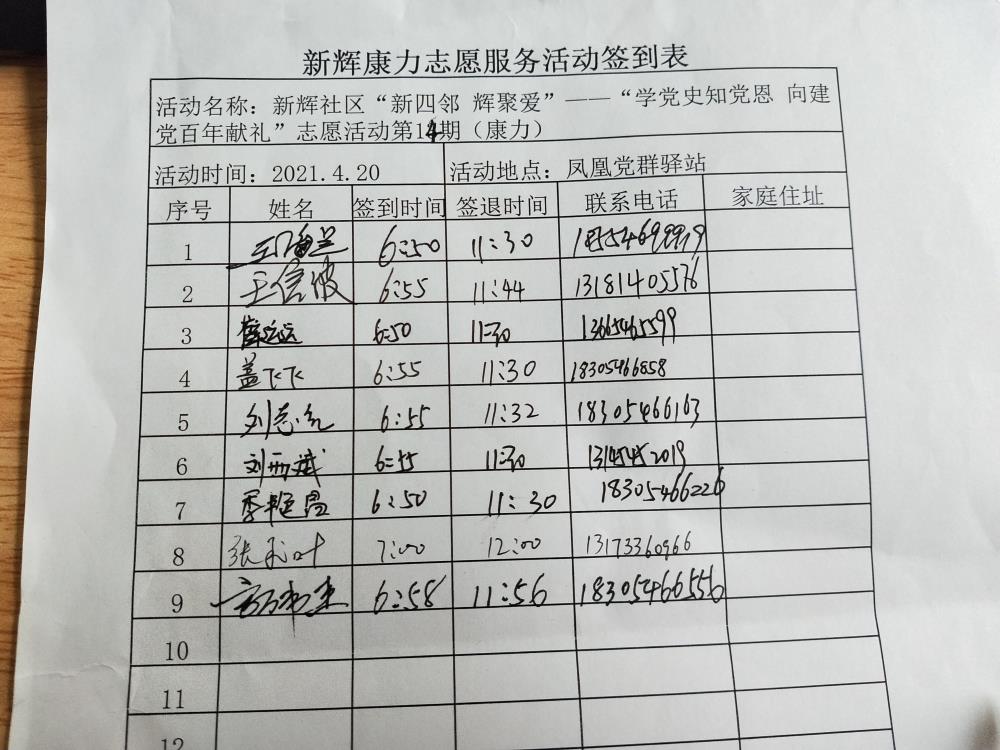 新辉康力志愿服务活动签到表
活动名称：新辉社区“新四邻 辉聚爱”——“学党史知党恩 向建
党百年献礼”志愿活动第14期（康力）
活动时间：2021.4.20 活动地点：凤凰党群驿站
序号 姓名 签到时间 签退时间 联系电话 家庭住址
1 6:50 11:30
2 王信波 6:55 11:44 13181405576
3 6:50 11:30 13665465599
4 盖飞飞 6:55 11:30 18305466858
5 刘志红 6:55 11:32 18305466163
6 刘西斌 6:55 11:30 13145452019
7 季艳昌 6:50 11:30 18305466226
8 张秀叶 7:00 12:00 13173360966
9 6:58 11:56 18305466556
10
11
12